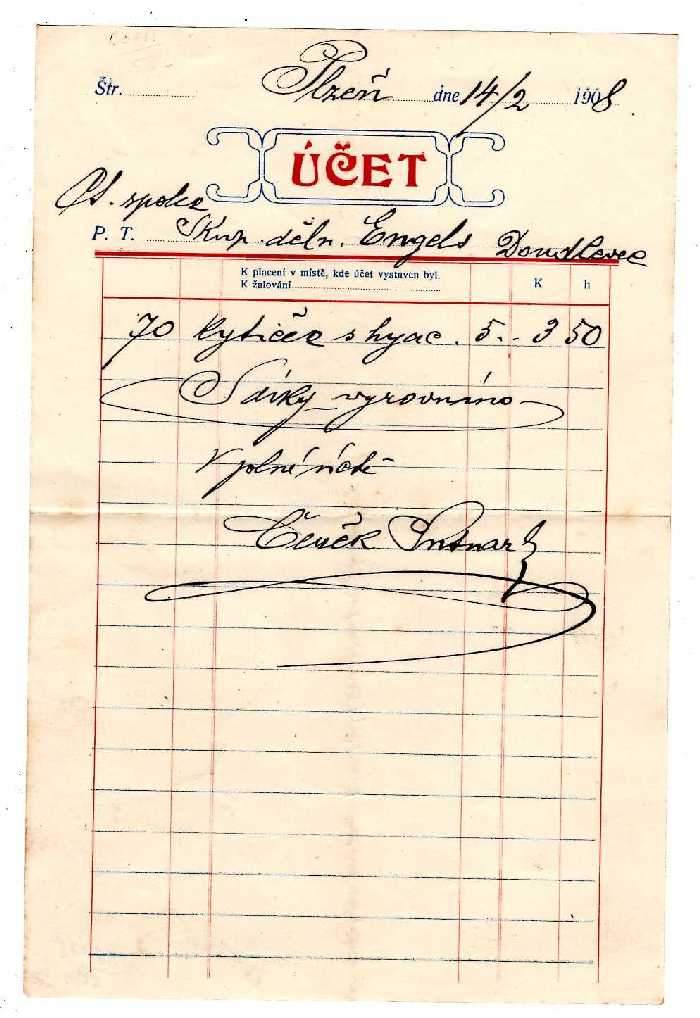 Štr. Plzeň dne 14/2 1908
ÚČET
spolek
P. T. děln. Engels Doudlevce
K placení v místě, kde účet vystaven byl.
K žalování K h
70 kytiček s hyac. 5.- 3 50
Díky vyrovnáno
v plné
Čeněk